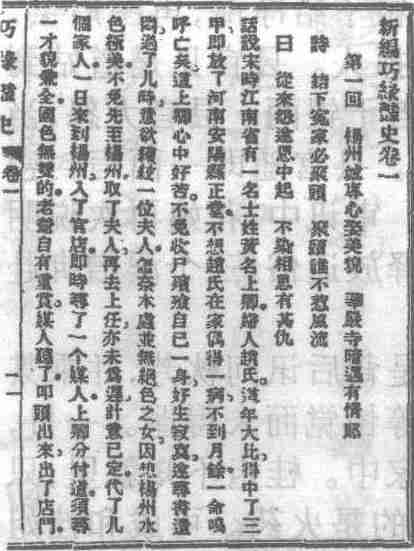 新編巧緣豔史卷一
第一回　楊州城專心娶美貌　華嚴寺暗遇有情郎
詩　結下冤家必聚頭　聚頭誰不惹風流
曰　從來怨遂恩中起　不染相思有甚仇
話說宋時江南省有一名士姓黃名上卿婦人趙氏這年大比得中了三
甲即放了河南安陽縣正堂不想趙氏在家偶得一病不到月餘一命嗚
呼亡矣這上卿心中好苦不免收尸殯殮自己一身好生寂寞遂尋書遣
悶過了几時意欲續絃一位夫人怎奈本處並無絕色之女因想楊州水
色極美不免先至楊州取了夫人再去上任亦未為遲計意已定代了几
個家人一日來到楊州入了官店即時尋了一個媒人上卿分付道須尋
一才貌兼全國色無雙的老爺自有重賞媒人聽了叩頭出來出了店門
巧緣豔史　卷一　一